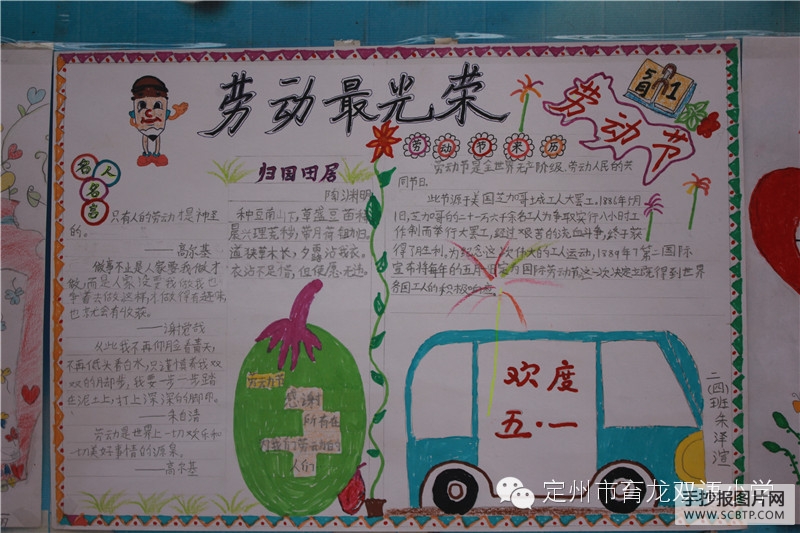 劳动最光荣
5月1
劳动节
名人名言
只有人的劳动才是神圣
的。
——高尔基
做事不止是人家要我做才
做,而是人家没要我做我也
争着去做。这样,才做得有趣味,
也才会有收获。
——谢觉哉
从此我不再仰脸看青天,
不再低头看白水,只谨慎着我双
双的脚步,我要一步一步踏
在泥土上,打上深深的脚印。
——朱自清
劳动是世界上一切欢乐和
一切美好事情的源泉。
——高尔基
归园田居
陶渊明
种豆南山下,草盛豆苗稀。
晨兴理荒秽,带月荷锄归。
道狭草木长,夕露沾我衣。
衣沾不足惜,但使愿无违。
劳动节
感谢
所有在
人们
劳动节来历
劳动节是全世界无产阶级、劳动人民的共
同节日。
此节源于美国芝加哥士成工人大罢工。1886年5月
1日,芝加哥的二十一万六千余名工人为争取实行八小时工
作制而举行大罢工,经过艰苦的流血斗争,终于获
得了胜利。为纪念这次伟大的工人运动,1889年7第二国际
宣布将每年的五月一日定为国际劳动节这一决定立即得到世界
各国工人的积极响应
欢度
五·一
二(四)班朱泽滋
定州市育龙双语小学
手抄报图片网
WWW.SCBTP.COM